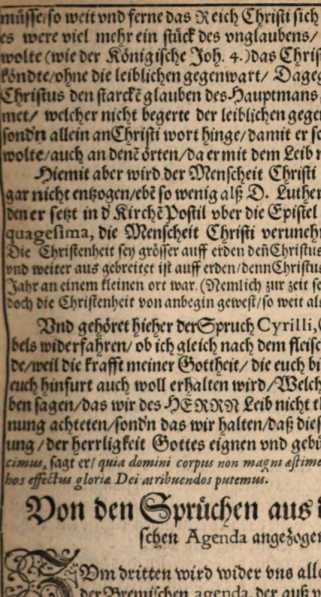 müsse/so weit vnd ferne das Reich Christi sich
es were viel mehr ein stück des vnglaubens/
wolte (wie der Königische Joh. 4.) das Chris
köndte/ohne die leiblichen gegenwart/ Dageg
Christus den starckē glauben des Hauptmans
met/ welcher nicht begerte der leiblichen gege
sond'n allein an Christi wort hinge/damit er se
wolte/auch an denē örten/da er mit dem Leib n
Hiemit aber wird der Menscheit Christi
gar nicht entzogen/ebē so wenig alß D. Luther
den er setzt in d' Kirchē Postil vber die Epistel
quagesima, die Menscheit Christi verunehr
Die Christenheit sey grösser auff erden deñ Christus
vnd weiter aus gebreitet ist auff erden/denn Christus
Jahr an einem kleinen ort war. (Nemlich zur zeit se
doch die Christenheit von anbegin gewest/so weit als
Vnd gehöret hieher der Spruch Cyrilli,
bels widerfahren/ ob ich gleich nach dem fleisc
de/weil die krafft meiner Gottheit/ die euch bi
euch hinfurt auch woll erhalten wird/Welch
ben sagen/das wir des HERRN Leib nicht
nung achteten/sond'n das wir halten/daß dies
ung/ der herrligkeit Gottes eignen vnd gebü
cimus, sagt er/ quia domini corpus non magni æstime
hos effectus gloriæ Dei atribuendos putemus.
Von den Sprüchen aus
schen Agenda angezogen
Zvm dritten wird wider vns alle
der Bremischen agenda, der auß v